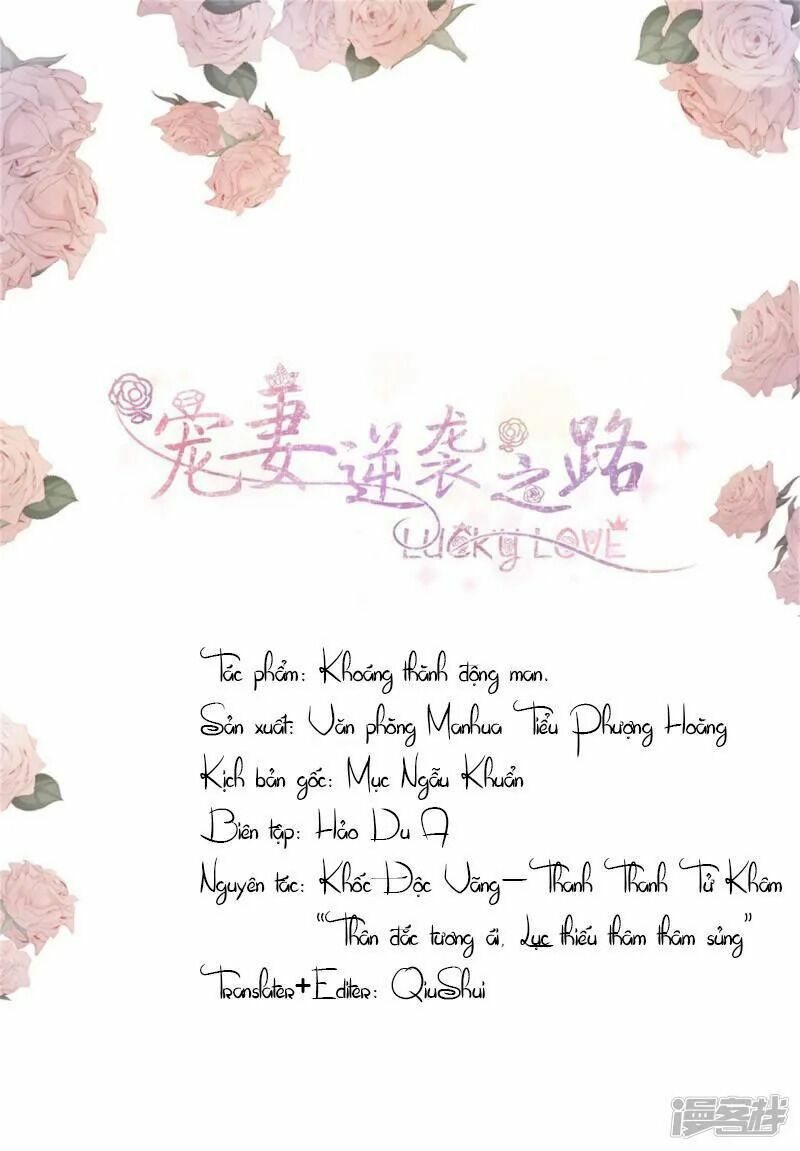 宠妻逆袭之路
LUCKY LOVE
Tác phẩm: Khoáng thành động man.
Sản xuất: Văn phòng Manhua Tiểu Phượng Hoàng
Kịch bản gốc: Mục Ngẫu Khuẩn
Biên tập: Hảo Du A
Nguyên tác: Khốc Độc Vãng—Thanh Thanh Tử Khâm
"Thân đắc tương ái, Lục thiếu thâm thâm sủng"
Translater+Editer: QiuShui
漫客栈